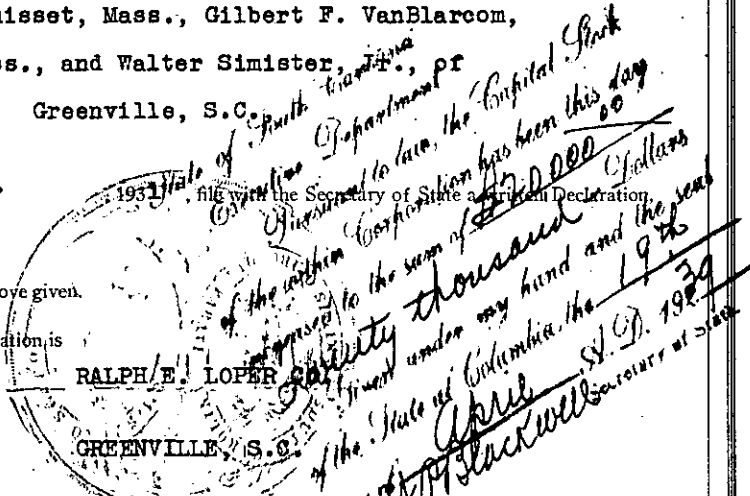 uisset, Mass., Gilbert F. VanBlarcom,
ss., and Walter Simister, Jr., of
Greenville, S.C.
1931, file with the Secretary of State a Declaration
ove given.
ation is
RALPH E. LOPER CO.
GREENVILLE, S.C.
State of South Carolina
Executive Department
Pursuant to law, the Capital Stock
of the within Corporation has been this day
increased to the sum of $20,000.00
Twenty thousand Dollars
Given under my hand and the seal
of the State at Columbia, the 19th
of April A.D. 1939
Blackwell Secretary of State